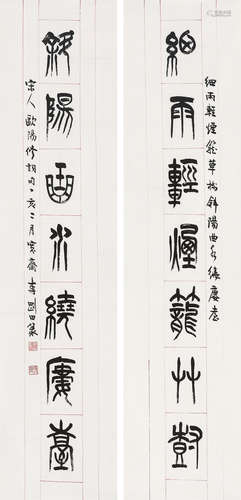 細雨輕煙籠草樹斜陽曲水繞樓臺
細雨輕煙籠艸樹
斜陽曲水繞樓臺
宋人歐陽修詞句丁亥二月寬齋李剛田篆